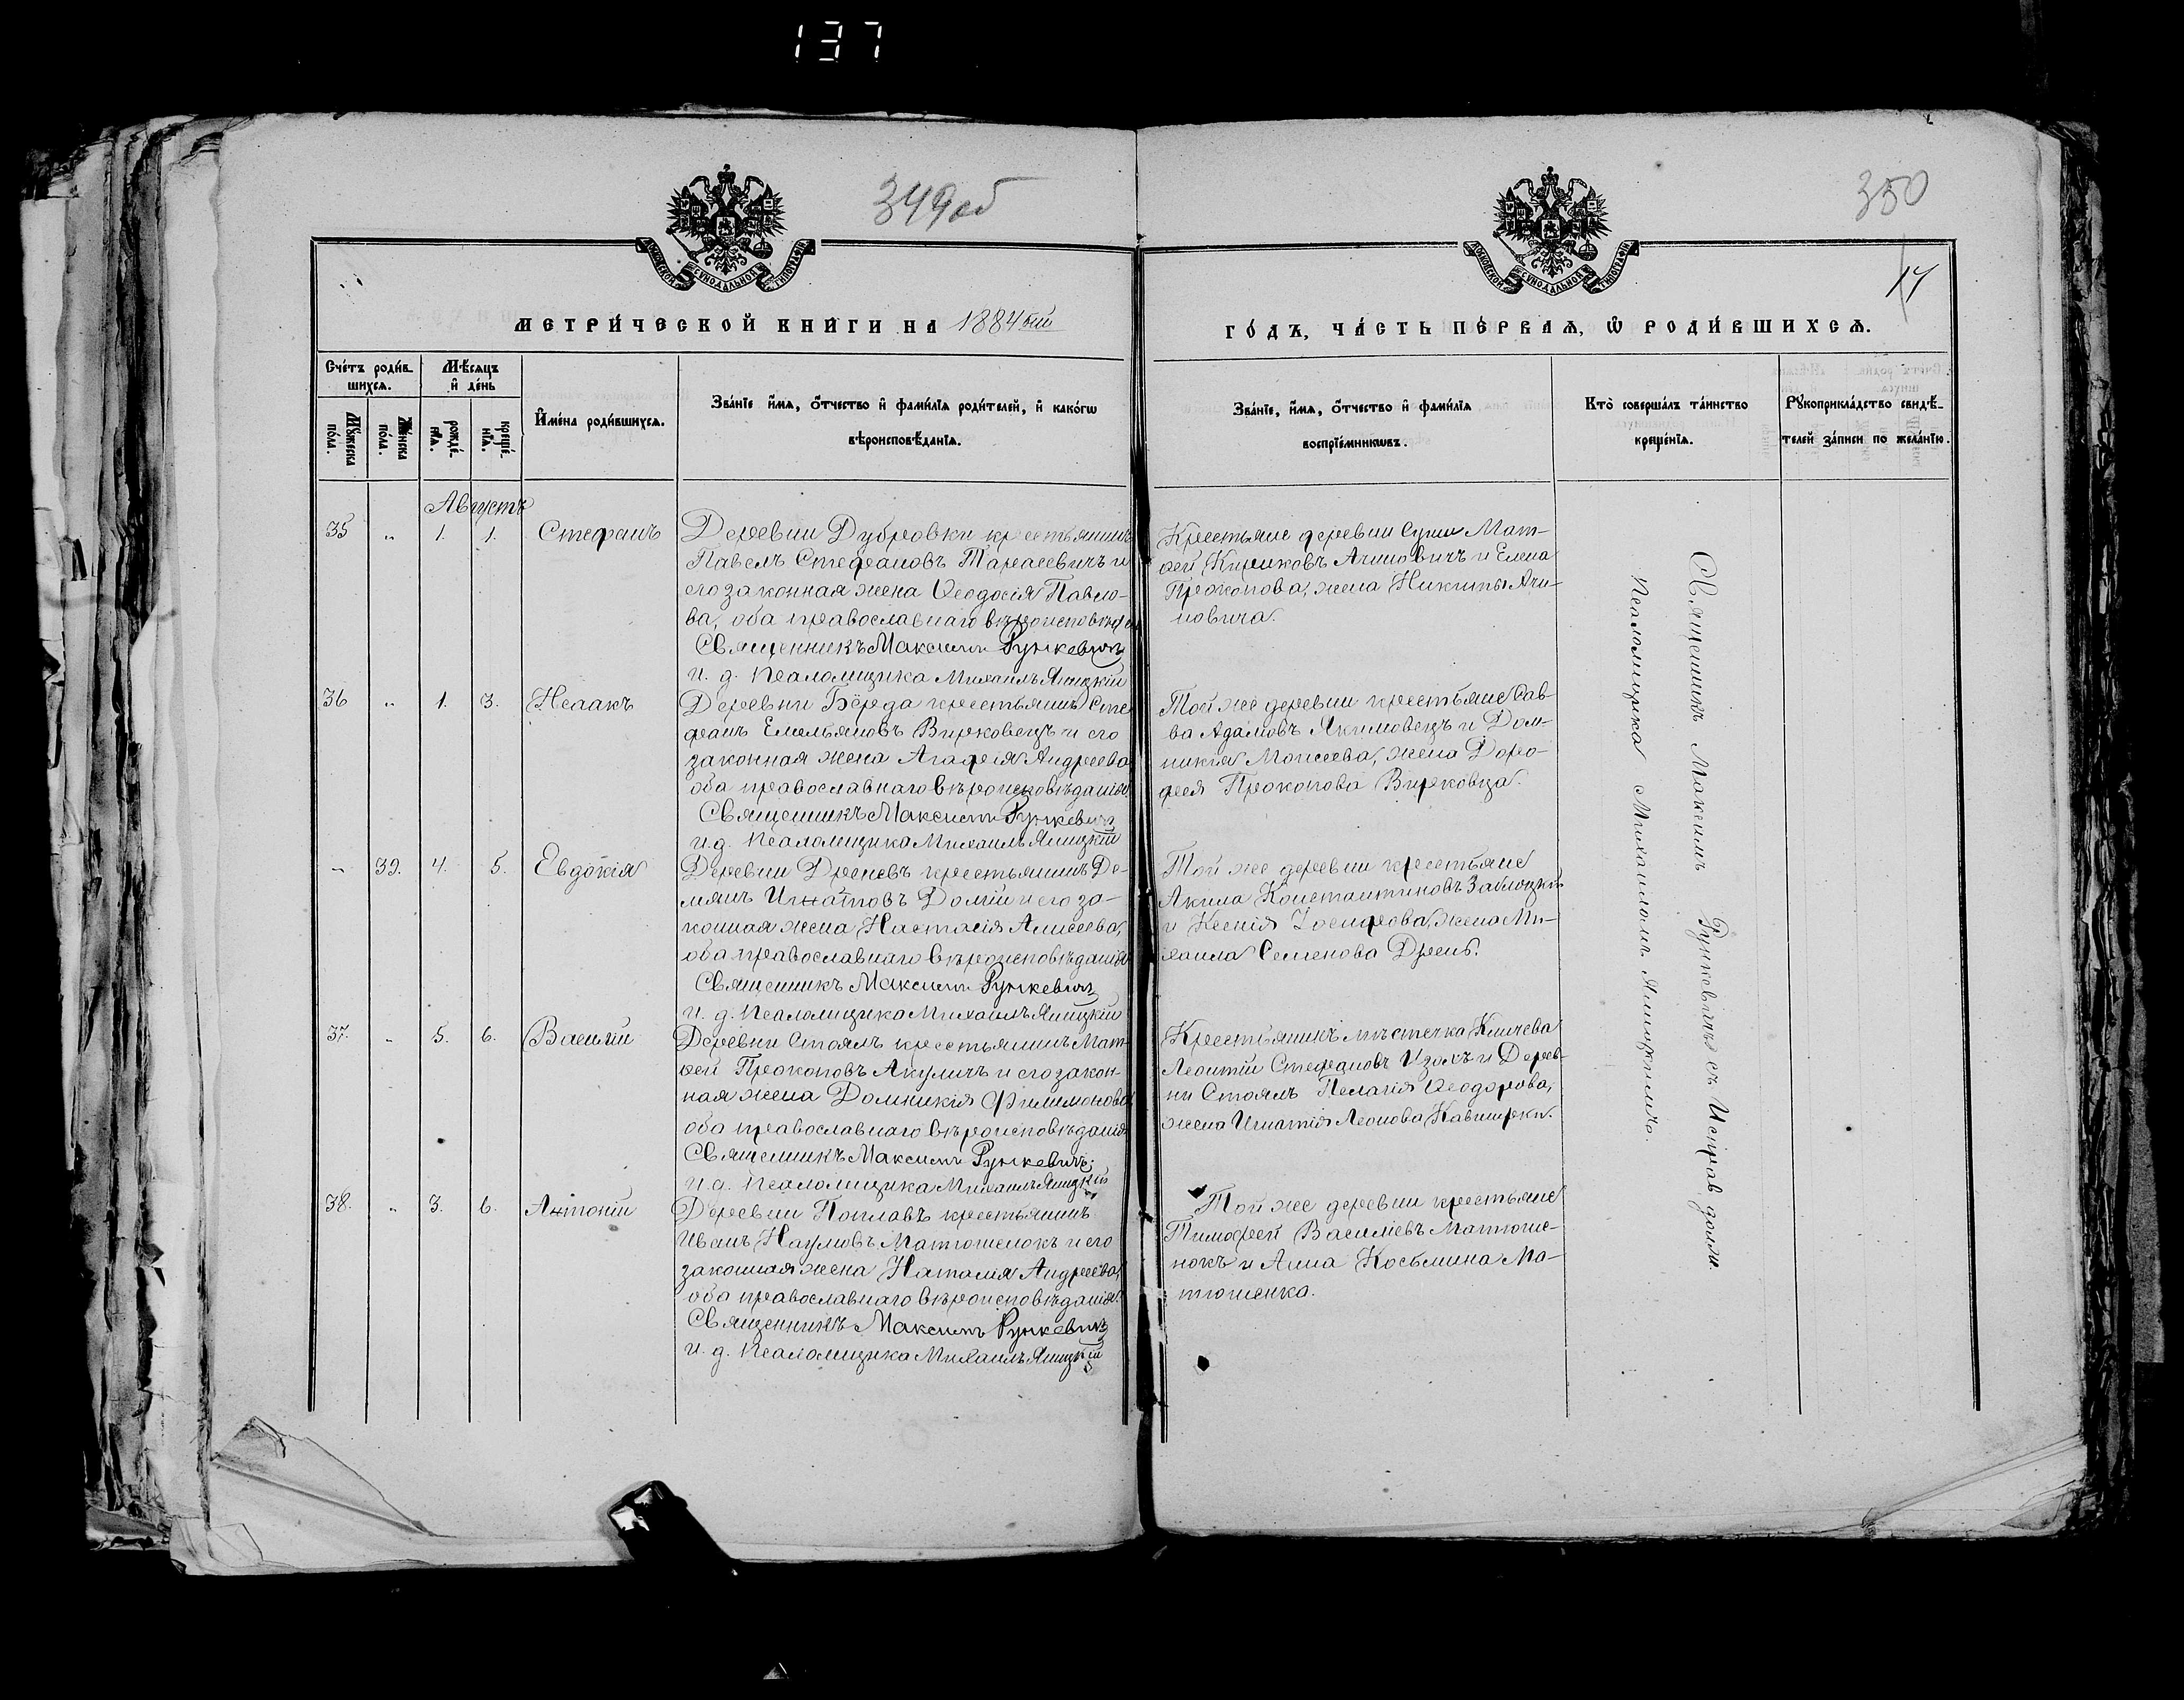 137
349об
350
17
МОСКОВСКОЙ СѴНОДАЛЬНОЙ ТИПОГРАФІИ
МОСКОВСКОЙ СѴНОДАЛЬНОЙ ТИПОГРАФІИ
МЕТРИ́ЧЕСКОЙ КНИ́ГИ НА 1884ый
ГО́ДЪ, ЧА́СТЬ ПЕ́РВАѦ, Ѽ РОДИ́ВШИХСѦ.
Сче́тъ роди́в-
шихсѧ.
Мѣ́сѧцъ
и҆ де́нь
Мꙋ́жеска
по́ла.
Же́нска
по́ла.
рожде́-
нїѧ.
креще́-
нїѧ.
И҆мена̀ роди́вшихсѧ.
Зва́нїе и҆́мѧ, ѻ҆́тчество и҆ фами́лїѧ роди́телей, и҆ како́гѡ
вѣроисповѣ́данїѧ.
Зва́нїе, и҆́мѧ, ѻ҆́тчество и҆ фами́лїѧ
воспрїе́мникѡвъ.
Кто̀ соверша́лъ та́инство
креще́нїѧ.
Рꙋкоприкла́дство свидѣ́-
телей за́писи по жела́нїю.
Августъ
35 „ 1. 1. Стефанъ
Деревни Дубровки крестьянинъ
Павелъ Стефановъ Тарасевичъ и
его законная жена Ѳеодосія Павло-
ва, оба православнаго вѣроисповѣд
Священникъ Максимъ Рункевичъ
и. д. Псаломщика Михаилъ Яницкій
Крестьяне деревни Суши Мат-
ѳей Кириковъ Ачиновичъ и Елена
Прокопова, жена Никиты Ачи-
новича.
36 „ 1. 3. Исаакъ
Деревни Берда крестьянинъ Сте
фанъ Емельяновъ Вирковецъ и его
законная жена Агафія Андреева
оба православнаго вѣроисповѣданія
Священникъ Максимъ Рункевичъ
и.д. Псаломщика Михаилъ Яницкій
Той же деревни крестьяне Сав-
ва Адамовъ Якимовецъ и Дом-
никія Моисеева, жена Доро-
фея Прокопова Вирковца.
— 39. 4. 5. Евдокія
Деревни Дреневъ крестьянинъ Де-
мянъ Игнатовъ Долгій и его за-
конная жена Настасія Алисеева,
оба православнаго вѣроисповѣданія
Священникъ Максимъ Рункевичъ
и. д. Псаломщика Михаилъ Яницкій
Той же деревни крестьяне
Акила Константиновъ Заблоцкій
и Ксенія Іосифова, жена Ми-
хаила Семенова Дрень.
37. „ 5. 6. Василій
Деревни Стоялъ крестьянинъ Мат-
ѳей Прокоповъ Акуличъ и его закон-
ная жена Домникія Филимонова
оба православнаго вѣроисповѣданія
Священникъ Максимъ Рункевичъ
и д. Псаломщика Михаилъ Яницкій
Крестьянинъ мѣстечка Кличева
Леонтій Стефановъ Изохъ и Дерев-
ни Стоялъ Пелагія Ѳеодорова,
жена Игнатія Леонова
38. „ 3. 6. Антоній
Деревни Поплавъ крестьянинъ
Иванъ Наумовъ Матюшенокъ и его
законная жена Наталія Андреева,
оба православнаго вѣроисповѣданія.
Священникъ Максимъ Рункевичъ
и. д. Псаломщика Михаилъ Яницкій
Той же деревни крестьяне
Тимофей Василіевъ Матюше-
нокъ и Анна Косьмина Ма-
тюшенка.
Священникъ Максимъ Рункевичъ съ Исправ. долж.
Псаломщика Михаиломъ Яницкимъ.